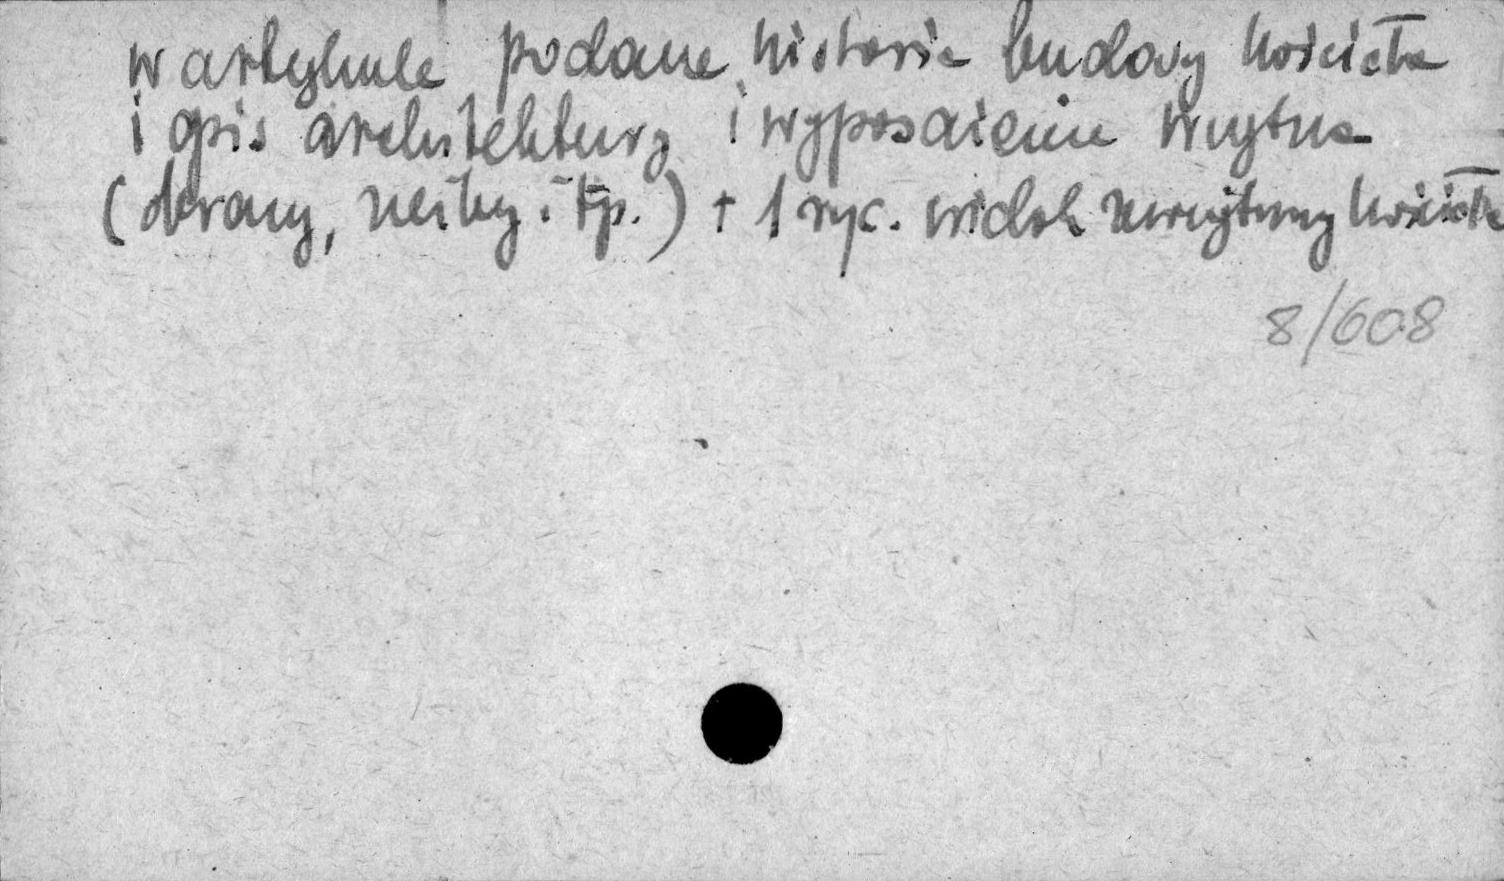 w artykule podane historia budowy kościoła
i opis architektury i wyposażenia wnętrza
(obrazy, rzeźby itp.) + 1 ryc. widok zewnętrzny kościoła
8/608